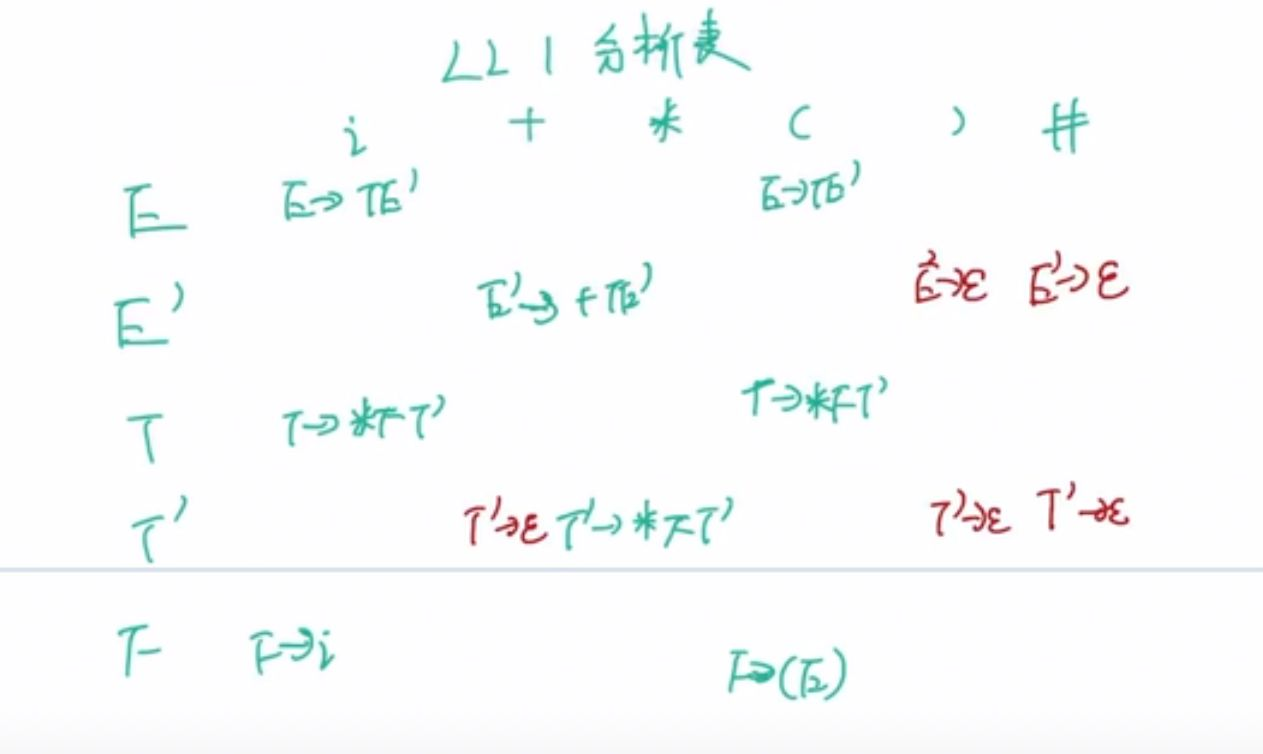 LL 1 分析表
i + * ( ) #
E E→TE' E→TE'
E' E'→+TE' E'→ε E'→ε
T T→*FT' T→*FT'
T' T'→ε T'→*FT' T'→ε T'→ε
F F→i F→(E)